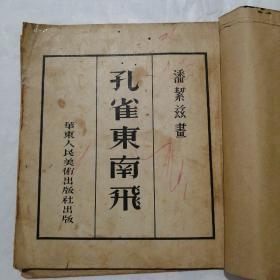 潘絜兹畫
孔雀東南飛
華東人民美術出版社出版